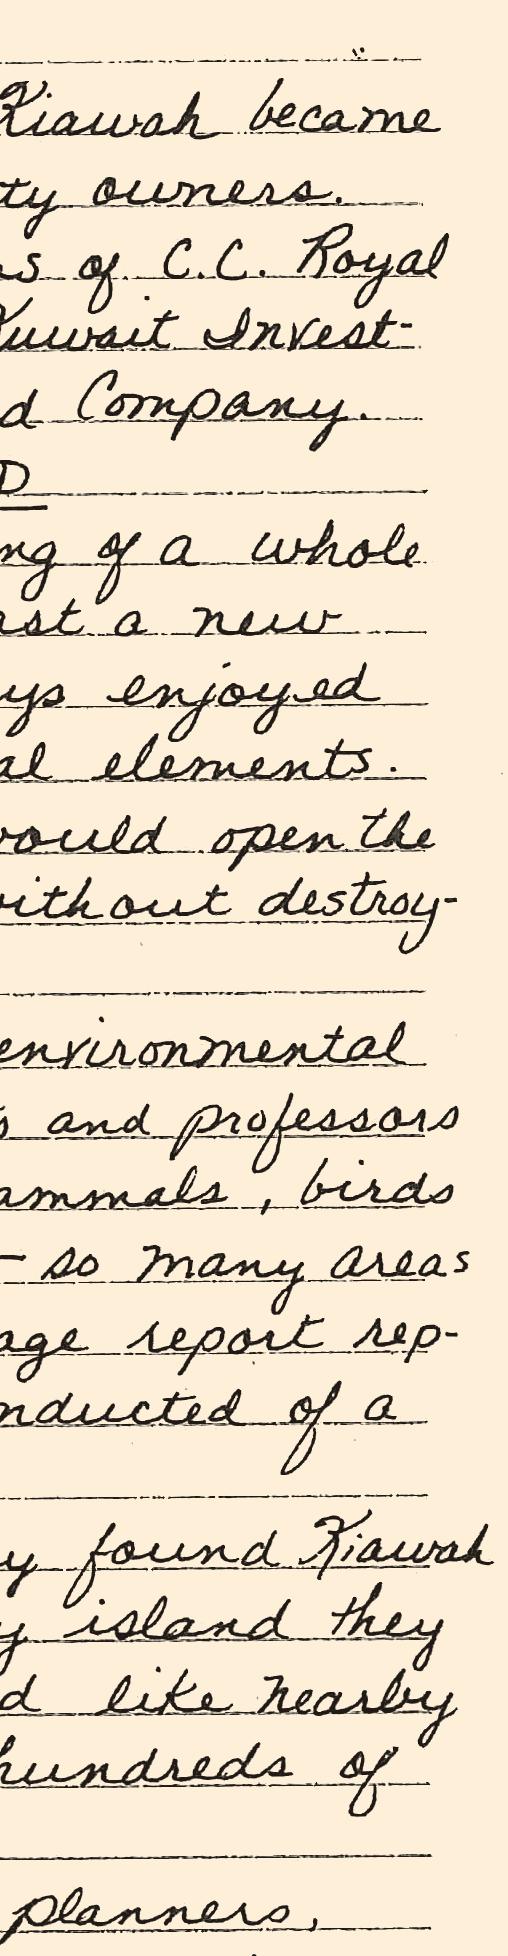 Kiawah became
ty owners.
s of C.C. Royal
Kuwait Invest-
d Company.
D
ng of a whole
ast a new
ys enjoyed
al elements.
would open the
without destroy-
environmental
s and professors
ammals, birds
- so many areas
age report rep-
nducted of a
y found Kiawah
y island they
d like nearby
hundreds of
planners,